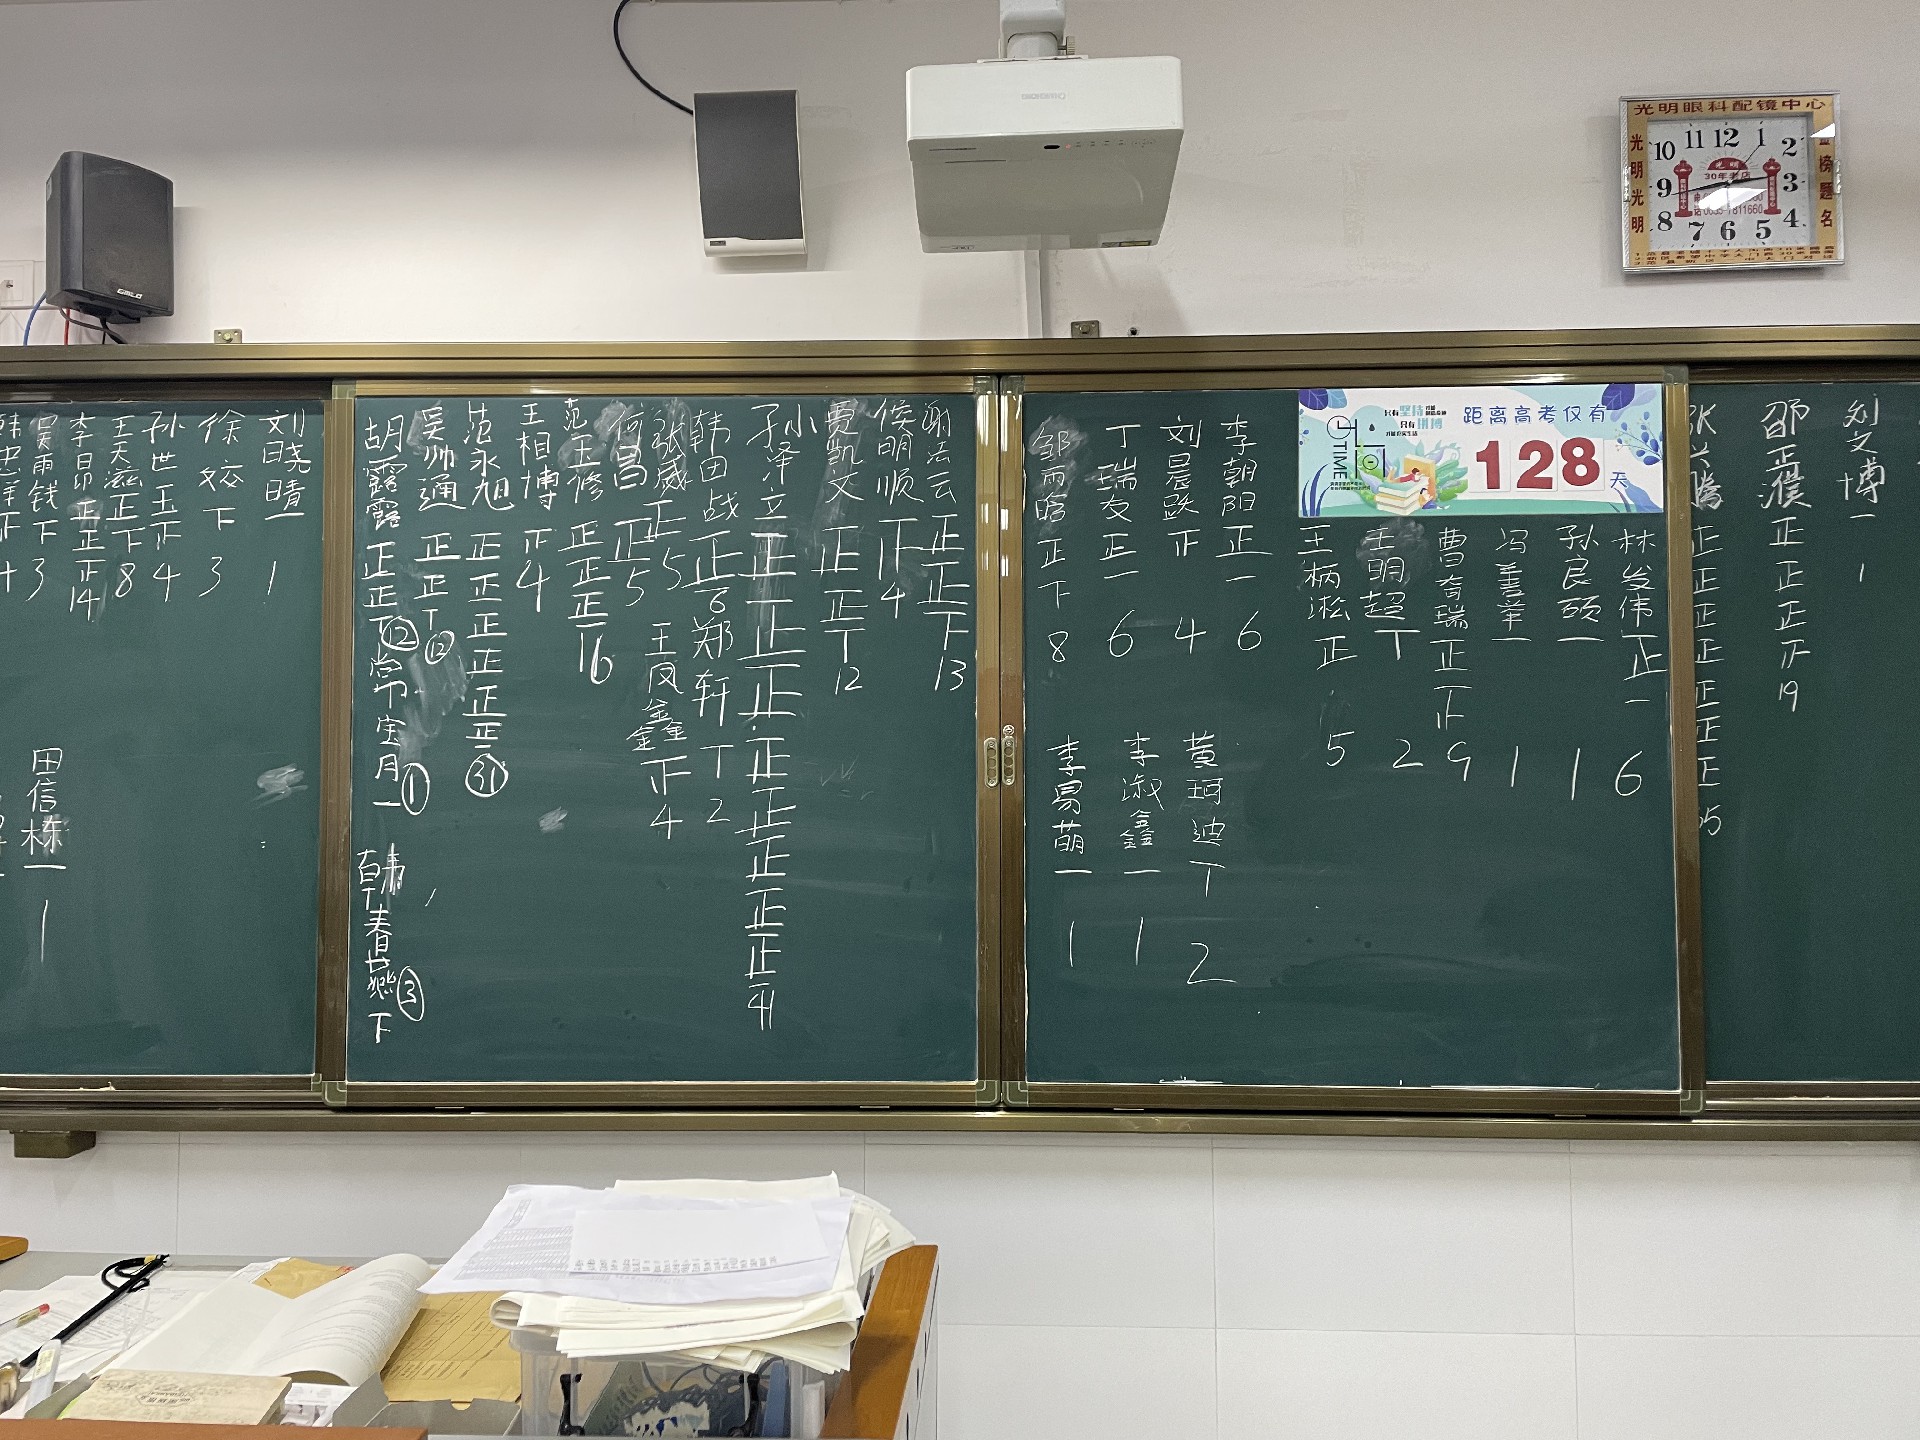 光明眼科配镜中心
光明光明
榜题名
11 12 1
10 2
9 3
8 4
7 6 5
光明
30年老店
距离高考仅有
128
天
只有坚持
只有拼搏
TIME
刘晓晴 一 1
徐姣 下 3
孙世玉 正 4
王天滋 正下 8
李昂 正正正 14
吴雨钱 下 3
田信栋 一 1
胡露露 正正丅 ⑫
常宝月 一 ①
韩春燕 下 ③
吴帅通 正正丅 ⑫
范永旭 正正正正正正一 ㉛
王相博 正 4
范玉修 正正正一 16
何昌 正 5
张威 正 5
王凤鑫 正 4
韩田战 正一 6
郑轩 丅 2
孙泽立 正正正正正正正正正正
贾凯文 正正丅 12
侯明顺 正 4
谢法云 正正下 13
邹雨晗 正下 8
丁瑞友 正一 6
刘晨跃 正 4
李朝阳 正一 6
李易萌 一 1
李淑鑫 一 1
黄珂迪 丅 2
王柄淞 正 5
王明超 丅 2
曹奇瑞 正正 9
冯善举 一 1
孙良硕 一 1
林发伟 正一 6
邵正濮 正正正正 19
刘文博 一 1